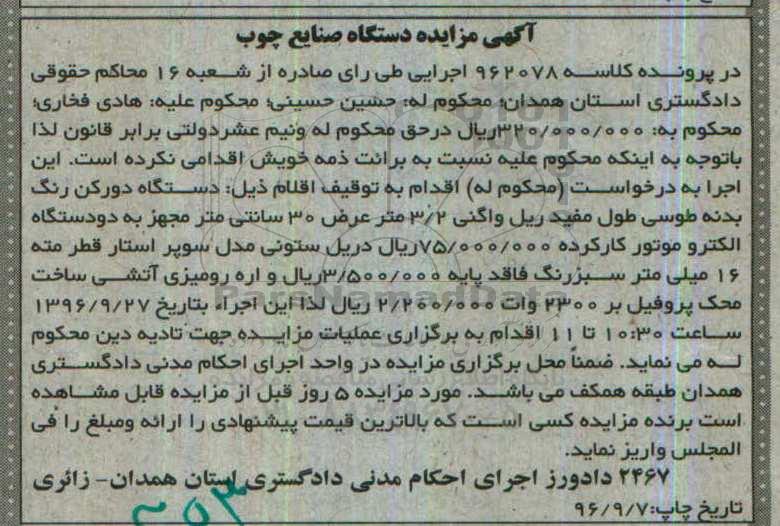 آگهی مزایده دستگاه صنایع چوب
در پرونده کلاسه ۹۶۲۰۷۸ اجرایی طی رای صادره از شعبه ۱۶ محاکم حقوقی
دادگستری استان همدان؛ محکوم له: حسین حسینی؛ محکوم علیه: هادی فخاری؛
محکوم به: ۳۲۰/۰۰۰/۰۰۰ریال درحق محکوم له ونیم عشردولتی برابر قانون لذا
باتوجه به اینکه محکوم علیه نسبت به برائت ذمه خویش اقدامی نکرده است. این
اجرا به درخواست (محکوم له) اقدام به توقیف اقلام ذیل: دستگاه دورکن رنگ
بدنه طوسی طول مفید ریل واگنی ۳/۲ متر عرض ۳۰ سانتی متر مجهز به دودستگاه
الکترو موتور کارکرده ۷۵/۰۰۰/۰۰۰ریال دریل ستونی مدل سوپر استار قطر مته
۱۶ میلی متر سبزرنگ فاقد پایه ۳/۵۰۰/۰۰۰ریال و اره رومیزی آتشی ساخت
محک پروفیل بر ۲۳۰۰ وات ۲/۲۰۰/۰۰۰ ریال لذا این اجراء بتاریخ ۱۳۹۶/۹/۲۷
ساعت ۱۰:۳۰ تا ۱۱ اقدام به برگزاری عملیات مزایده جهت تادیه دین محکوم
له می نماید. ضمناً محل برگزاری مزایده در واحد اجرای احکام مدنی دادگستری
همدان طبقه همکف می باشد. مورد مزایده ۵ روز قبل از مزایده قابل مشاهده
است برنده مزایده کسی است که بالاترین قیمت پیشنهادی را ارائه ومبلغ را فی
المجلس واریز نماید.
۲۴۶۷ دادورز اجرای احکام مدنی دادگستری استان همدان- زائری
تاریخ چاپ:۹۶/۹/۷